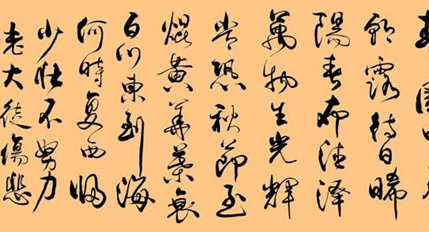 園
朝露待日晞
陽春布德泽
萬物生光輝
常恐秋節至
焜黄華葉衰
百川東到海
何時复西歸
少壮不努力
老大徒傷悲